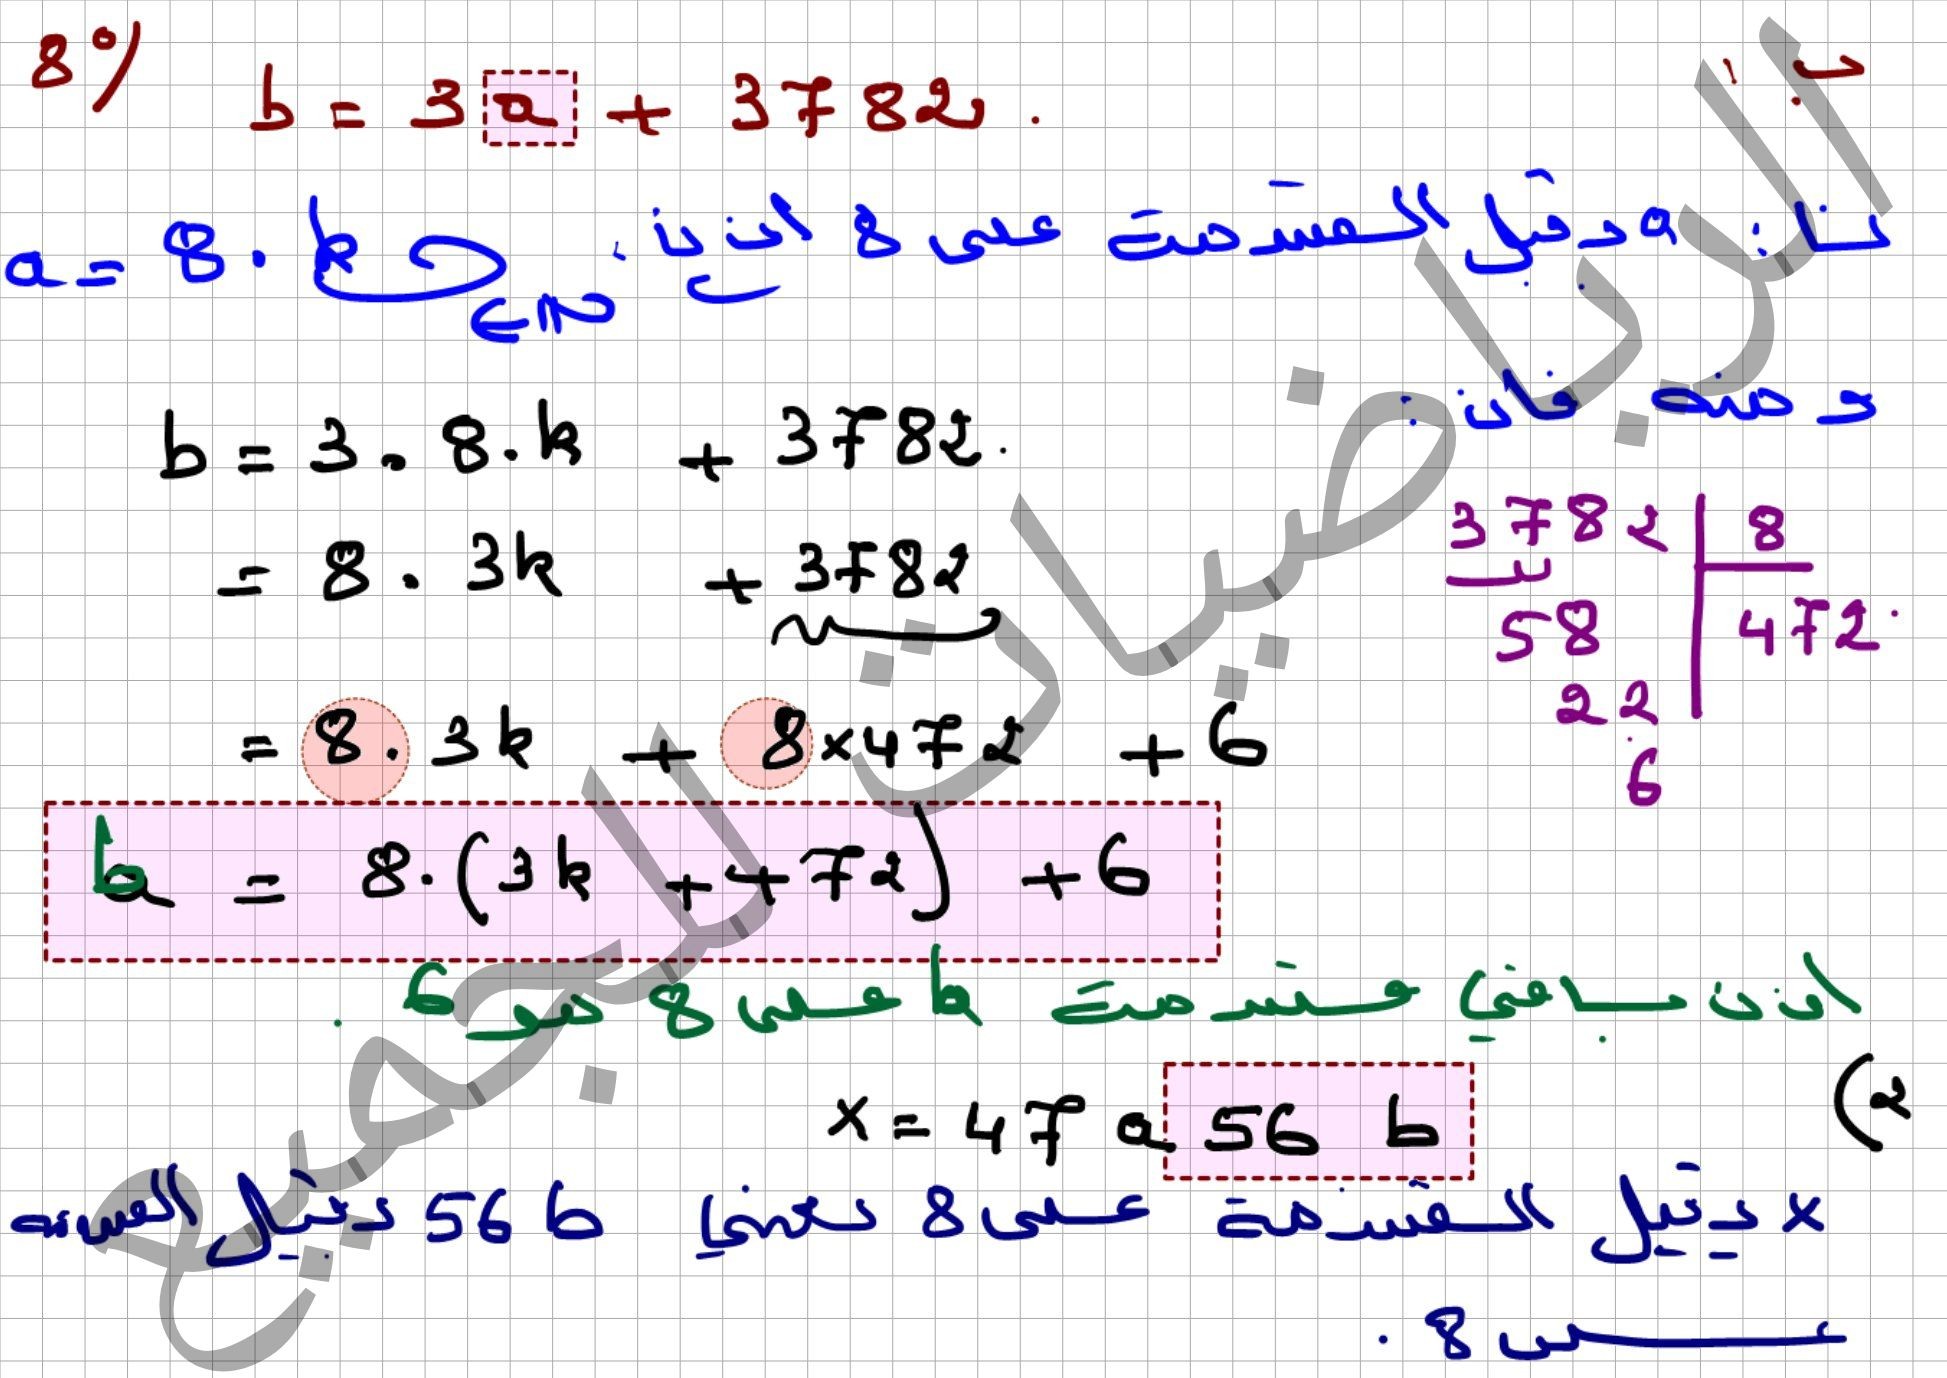 8°/
b = 3a + 3782.
ب :
لنا : a يقبل القسمة على 8 اذن : a = 8 . k
∈ ℕ
ومنه فان :
b = 3 . 8 . k + 3782.
= 8 . 3k + 3782
= 8 . 3k + 8×472 + 6
b = 8.(3k + 472) + 6
3782 | 8
58 | 472
22
6
اذن باقي قسمة b على 8 هو 6 .
2) x = 47 a 56 b
x يقبل القسمة على 8 يعني 56 b يقبل القسمة
على 8 .
الرياضيات للجميع